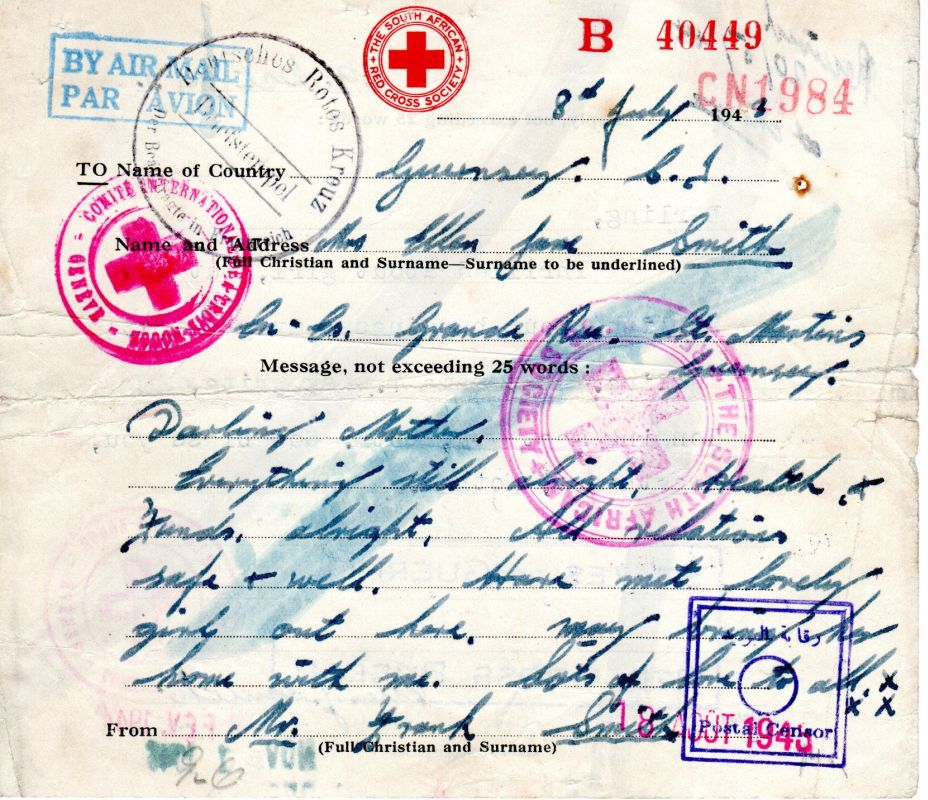 BY AIR MAIL
PAR AVION
THE SOUTH AFRICAN RED CROSS SOCIETY
B 40449
CN1984
Deutsches Rotes Kreuz
8th July 1943
TO Name of Country Guernsey. C.I.
COMITÉ INTERNATIONAL DE LA CROIX-ROUGE - GENÈVE -
Name and Address Mrs Ellen Jane Smith
(Full Christian and Surname—Surname to be underlined)
Grande Rue. St. Martins
Guernsey.
Message, not exceeding 25 words :
THE SOUTH AFRICAN RED CROSS SOCIETY
Darling Mother.
Everything still alright, Health, +
Funds, alright, All relations
safe + well. Have met lovely
girl out here. may bring her
home with me. Lots of love to all. x x
x x
رقابة البريد
Postal Censor
From Mr. Frank Smith
18 AOÛT 1943
(Full Christian and Surname)
NOV